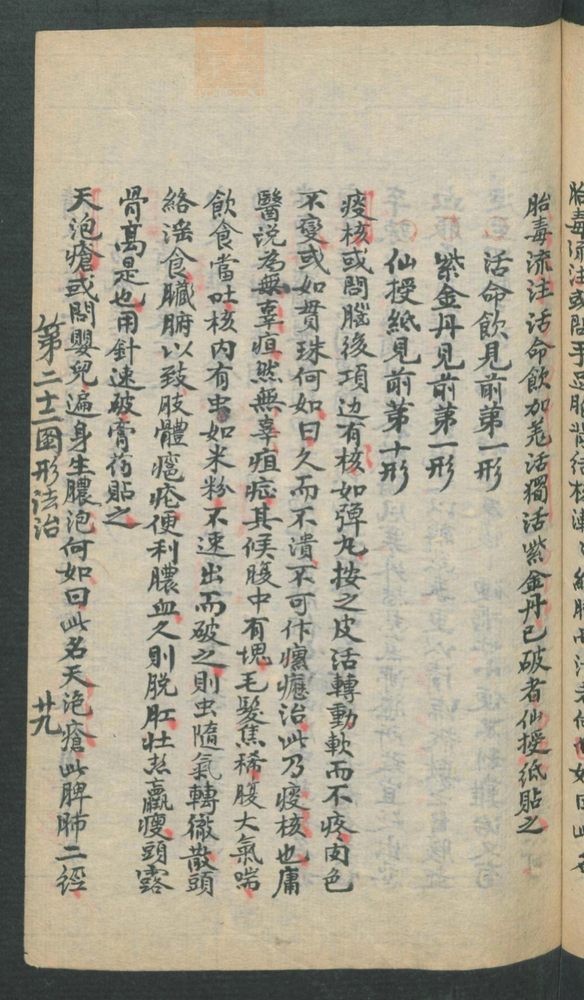 胎毒流注活命飲加羌活獨活紫金丹已破者仙授紙貼之
活命飲見前第一形
紫金丹見前第一形
仙授紙見前第十形
痰核或問腦後項边有核如彈丸按之皮活轉動軟而不疼肉色
不變或如貫珠何如曰久而不潰不可作瘰癧治此乃痰核也庸
醫説為無辜疽然無辜疽症其候腹中有塊毛髮焦稀腹大氣喘
飲食當吐核内有虫如米粉不速出而破之則虫隨氣轉徹散頭
絡滛食臟腑以致肢體瘡便利膿血久則脱肛壮熱羸瘦頭露
骨髙是也用針速破膏药貼之
天泡瘡或問嬰兒遍身生膿泡何如曰此名天泡瘡此脾肺二經
第二十一圖形法治
廿九